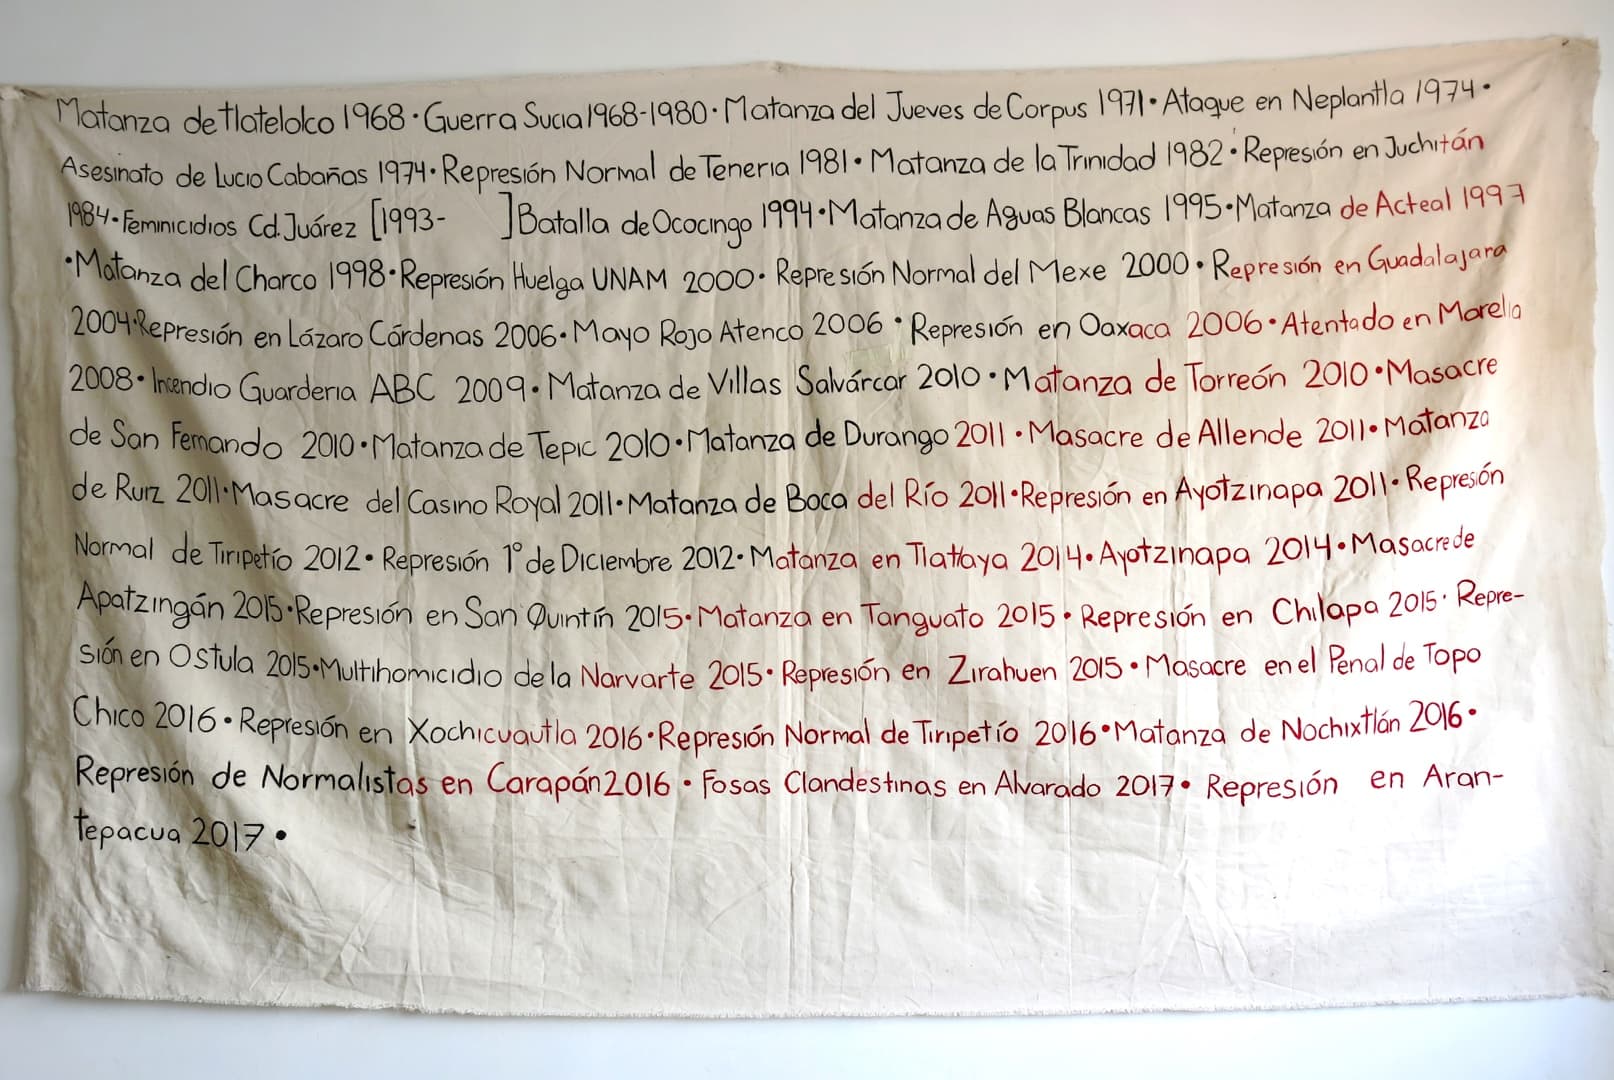 Matanza de tlatelolco 1968 · Guerra Sucia 1968-1980 · Matanza del Jueves de Corpus 1971 · Ataque en Neplantla 1974 ·
Asesinato de Lucio Cabañas 1974 · Represión Normal de Teneria 1981 · Matanza de la Trinidad 1982 · Represión en Juchitán
1984 · Feminicidios Cd. Juárez [1993- ] Batalla de Ococingo 1994 · Matanza de Aguas Blancas 1995 · Matanza de Acteal 1997
· Matanza del Charco 1998 · Represión Huelga UNAM 2000 · Represión Normal del Mexe 2000 · Represión en Guadalajara
2004 · Represión en Lázaro Cárdenas 2006 · Mayo Rojo Atenco 2006 · Represión en Oaxaca 2006 · Atentado en Morelia
2008 · Incendio Guarderia ABC 2009 · Matanza de Villas Salvárcar 2010 · Matanza de Torreón 2010 · Masacre
de San Fernando 2010 · Matanza de Tepic 2010 · Matanza de Durango 2011 · Masacre de Allende 2011 · Matanza
de Ruiz 2011 · Masacre del Casino Royal 2011 · Matanza de Boca del Río 2011 · Represión en Ayotzinapa 2011 · Represión
Normal de Tiripetío 2012 · Represión 1° de Diciembre 2012 · Matanza en Tlatlaya 2014 · Ayotzinapa 2014 · Masacre de
Apatzingán 2015 · Represión en San Quintín 2015 · Matanza en Tanguato 2015 · Represión en Chilapa 2015 · Repre-
sión en Ostula 2015 · Multihomicidio de la Narvarte 2015 · Represión en Zirahuen 2015 · Masacre en el Penal de Topo
Chico 2016 · Represión en Xochicuautla 2016 · Represión Normal de Tiripetío 2016 · Matanza de Nochixtlán 2016 ·
Represión de Normalistas en Carapán 2016 · Fosas Clandestinas en Alvarado 2017 · Represión en Aran-
tepacua 2017 ·